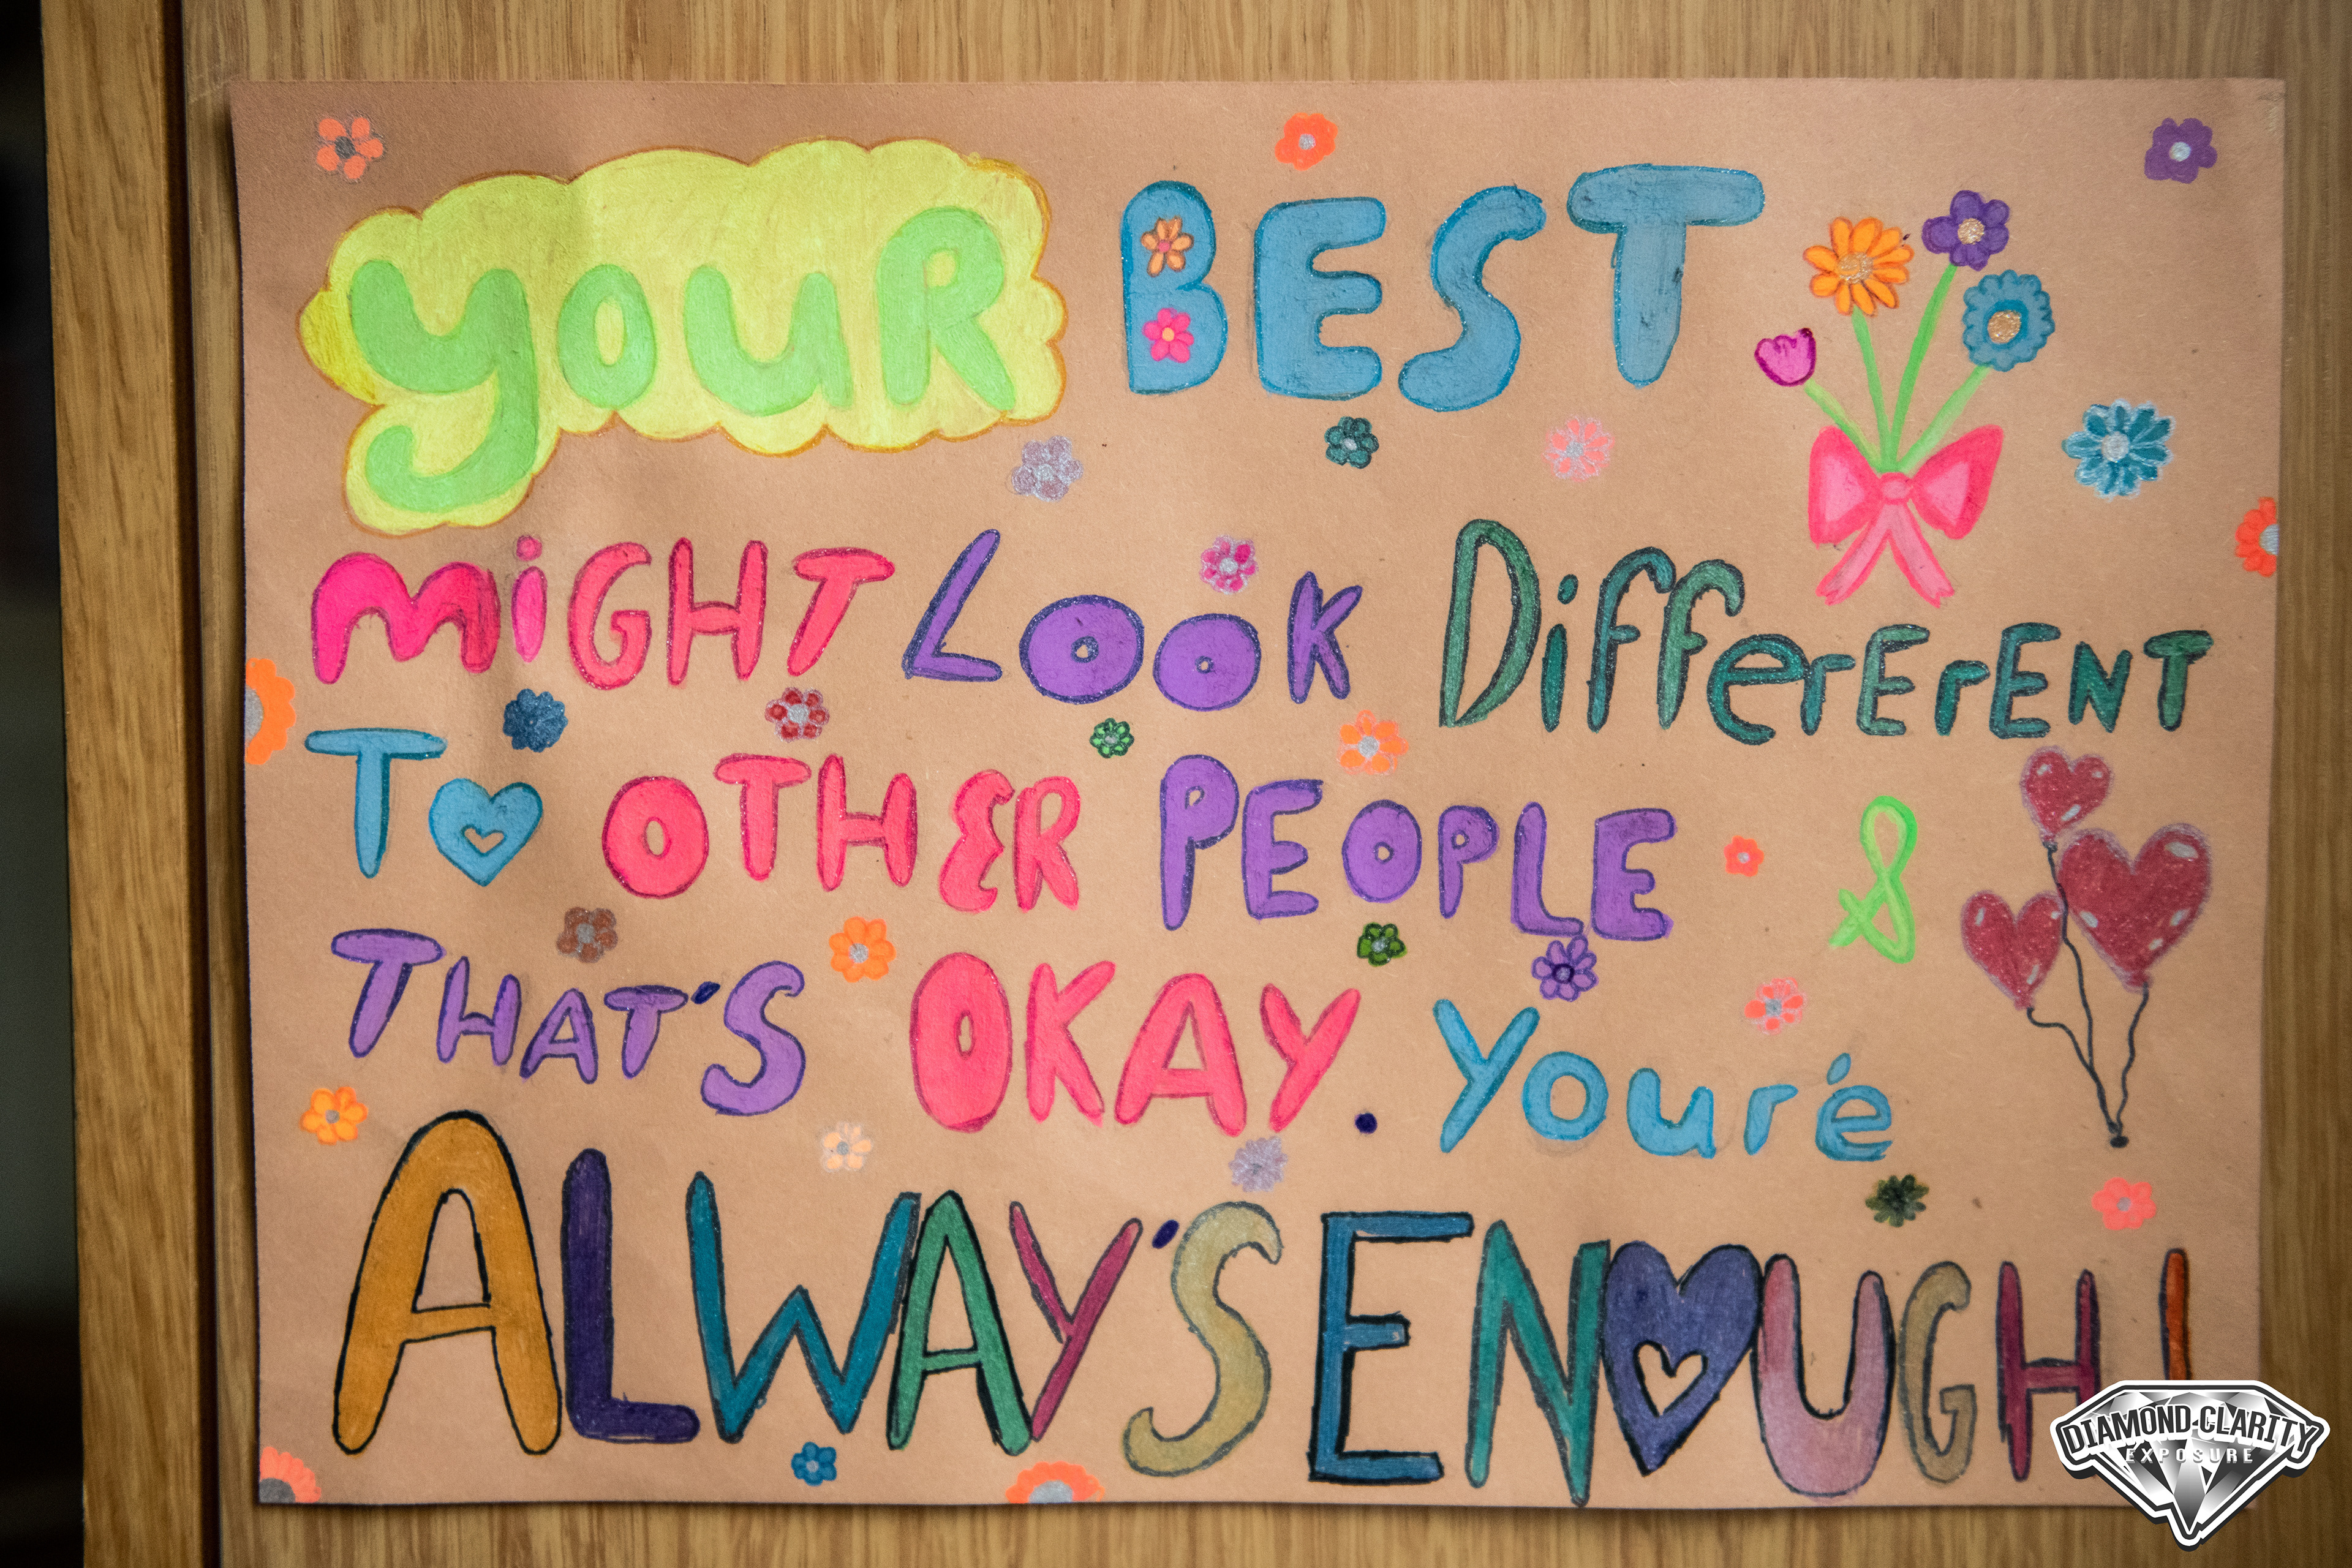 YOUR BEST
MiGHT LOOK DiffErErENT
TO OTHER PEOPLE &
THAT'S OKAY. Your'e
ALWAY'S ENOUGH!
DIAMOND CLARITY
EXPOSURE